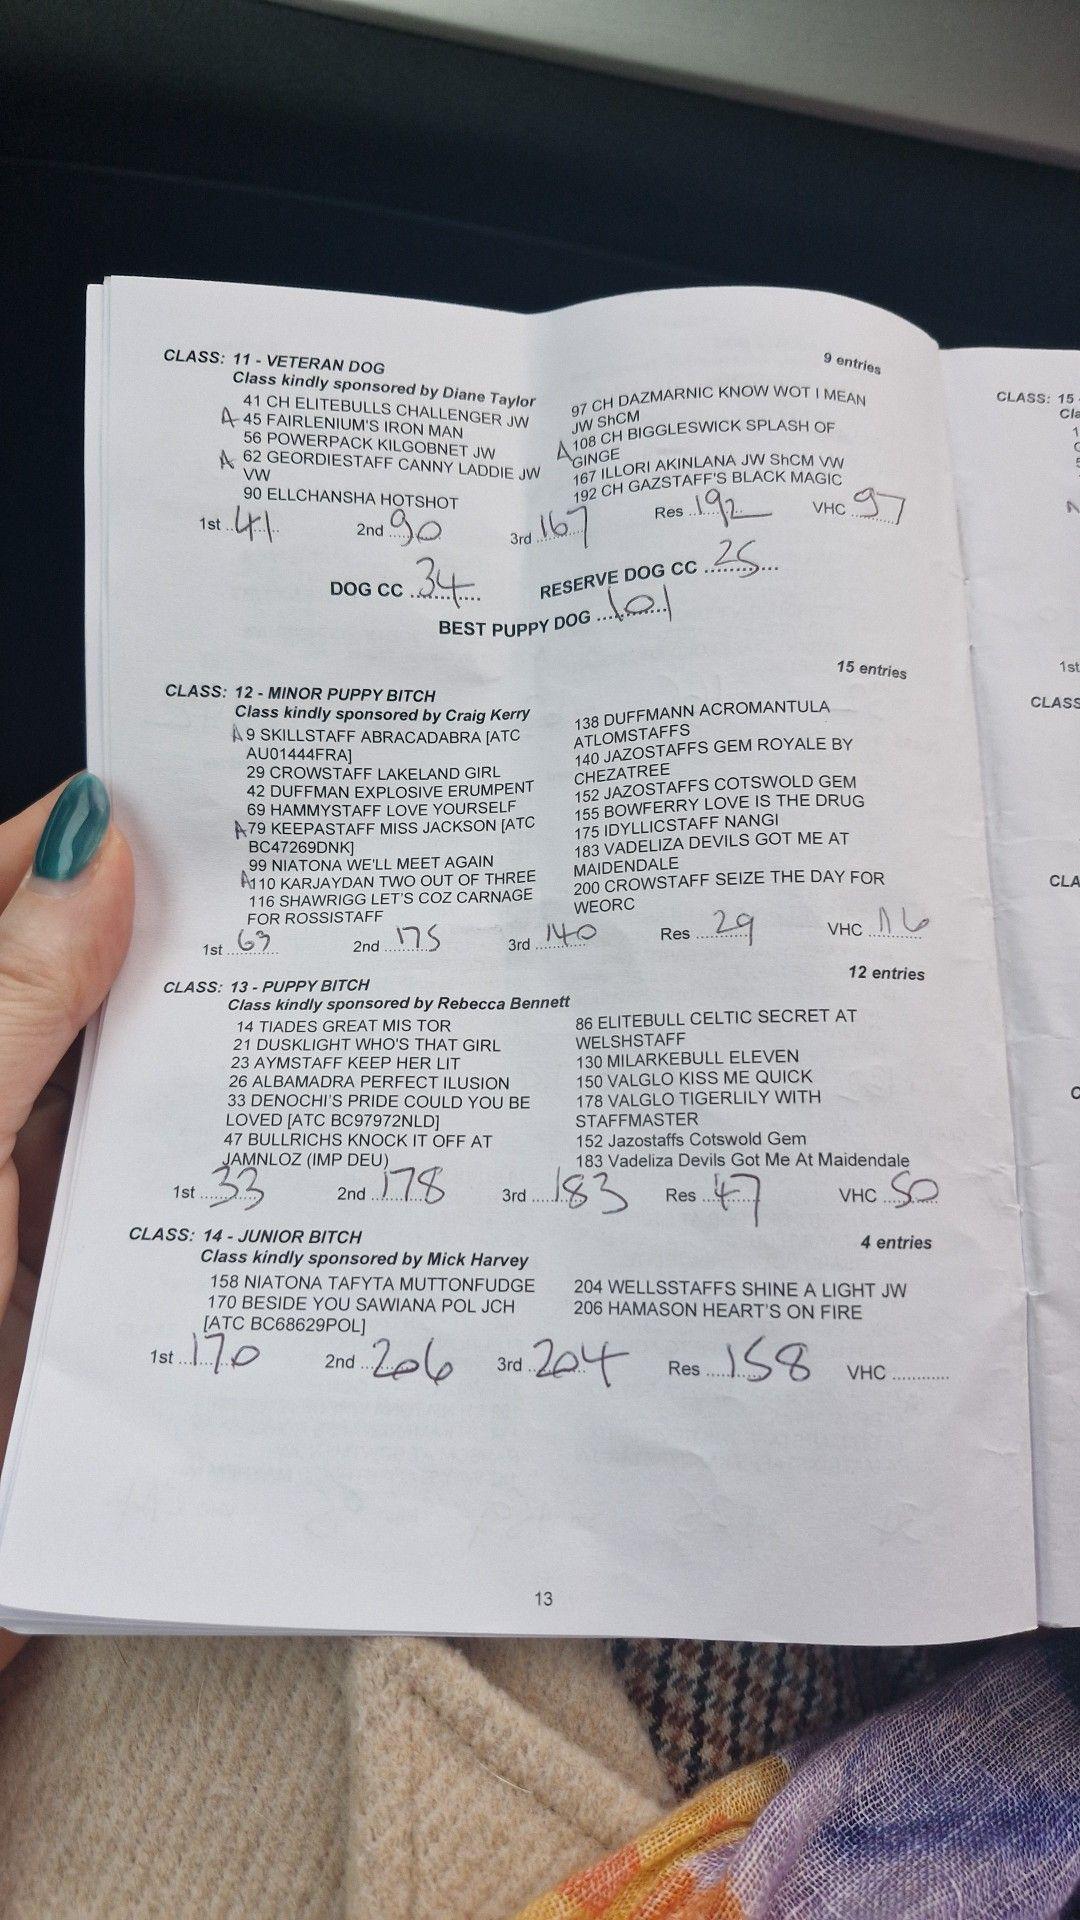 CLASS: 11 - VETERAN DOG 9 entries
Class kindly sponsored by Diane Taylor
41 CH ELITEBULLS CHALLENGER JW
A 45 FAIRLENIUM'S IRON MAN
56 POWERPACK KILGOBNET JW
A 62 GEORDIESTAFF CANNY LADDIE JW
VW
90 ELLCHANSHA HOTSHOT
97 CH DAZMARNIC KNOW WOT I MEAN
JW ShCM
A 108 CH BIGGLESWICK SPLASH OF
GINGE
167 ILLORI AKINLANA JW ShCM VW
192 CH GAZSTAFF'S BLACK MAGIC
1st 41 2nd 90 3rd 167 Res 192 VHC 97
DOG CC 34 RESERVE DOG CC 25
BEST PUPPY DOG 101
CLASS: 12 - MINOR PUPPY BITCH 15 entries
Class kindly sponsored by Craig Kerry
A 9 SKILLSTAFF ABRACADABRA [ATC
AU01444FRA]
29 CROWSTAFF LAKELAND GIRL
42 DUFFMAN EXPLOSIVE ERUMPENT
69 HAMMYSTAFF LOVE YOURSELF
A 79 KEEPASTAFF MISS JACKSON [ATC
BC47269DNK]
99 NIATONA WE'LL MEET AGAIN
A 110 KARJAYDAN TWO OUT OF THREE
116 SHAWRIGG LET'S COZ CARNAGE
FOR ROSSISTAFF
138 DUFFMANN ACROMANTULA
ATLOMSTAFFS
140 JAZOSTAFFS GEM ROYALE BY
CHEZATREE
152 JAZOSTAFFS COTSWOLD GEM
155 BOWFERRY LOVE IS THE DRUG
175 IDYLLICSTAFF NANGI
183 VADELIZA DEVILS GOT ME AT
MAIDENDALE
200 CROWSTAFF SEIZE THE DAY FOR
WEORC
1st 69 2nd 175 3rd 140 Res 29 VHC 116
CLASS: 13 - PUPPY BITCH 12 entries
Class kindly sponsored by Rebecca Bennett
14 TIADES GREAT MIS TOR
21 DUSKLIGHT WHO'S THAT GIRL
23 AYMSTAFF KEEP HER LIT
26 ALBAMADRA PERFECT ILUSION
33 DENOCHI'S PRIDE COULD YOU BE
LOVED [ATC BC97972NLD]
47 BULLRICHS KNOCK IT OFF AT
JAMNLOZ (IMP DEU)
86 ELITEBULL CELTIC SECRET AT
WELSHSTAFF
130 MILARKEBULL ELEVEN
150 VALGLO KISS ME QUICK
178 VALGLO TIGERLILY WITH
STAFFMASTER
152 Jazostaffs Cotswold Gem
183 Vadeliza Devils Got Me At Maidendale
1st 33 2nd 178 3rd 183 Res 47 VHC 50
CLASS: 14 - JUNIOR BITCH 4 entries
Class kindly sponsored by Mick Harvey
158 NIATONA TAFYTA MUTTONFUDGE
170 BESIDE YOU SAWIANA POL JCH
[ATC BC68629POL]
204 WELLSSTAFFS SHINE A LIGHT JW
206 HAMASON HEART'S ON FIRE
1st 170 2nd 206 3rd 204 Res 158 VHC
13
CLASS: 15
1st
CLASS